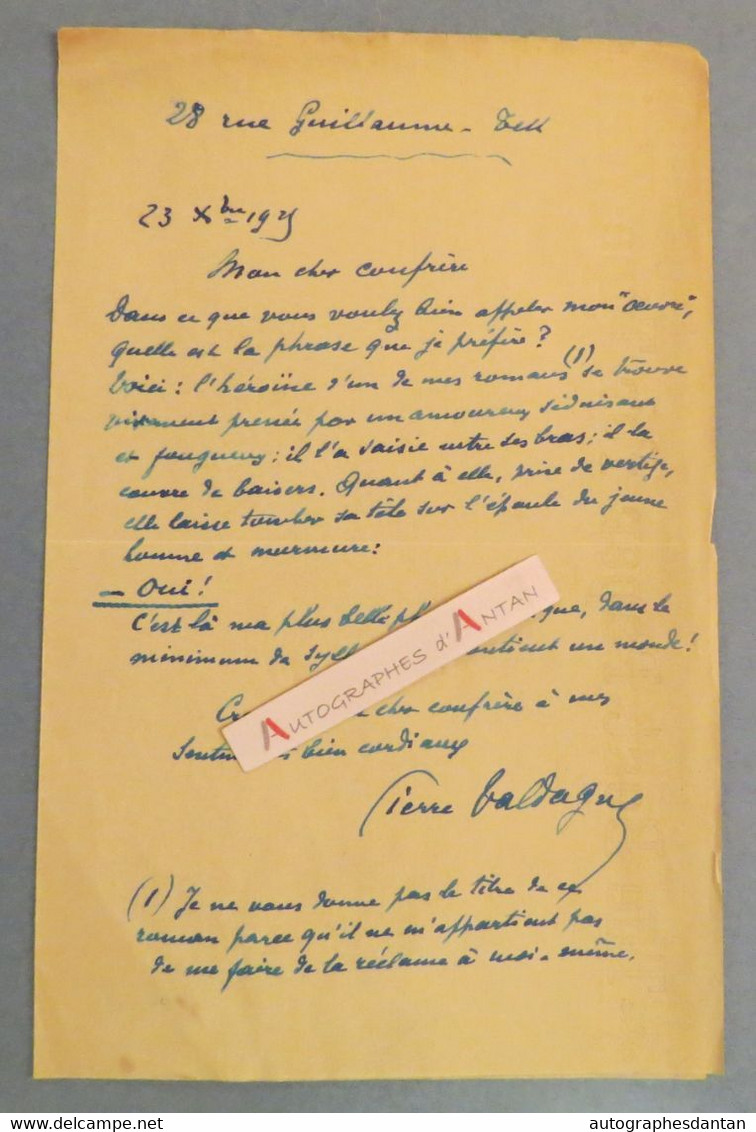 28 rue Guillaume-Tell
23 Xbre 1925
Mon cher confrère
Dans ce que vous voulez bien appeler mon "œuvre",
quelle est la phrase que je préfère?
Voici: l'héroïne d'un de mes romans (1) se trouve
vivement pressée par un amoureux séduisant
et fougueux; il l'a saisie entre ses bras; il la
couvre de baisers. Quant à elle, prise de vertige,
elle laisse tomber sa tête sur l'épaule du jeune
homme et murmure:
— Oui!
C'est là ma plus belle dans le
minimum de un monde!
cher confrère à mes
bien cordiaux
Pierre Valdagne
(1) Je ne vous donne pas le titre de ce
roman parce qu'il ne m'appartient pas
de me faire de la réclame à moi-même.
AUTOGRAPHES d'ANTAN
delcampe.net
autographesdantan